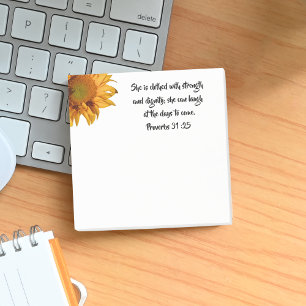 delete
She is clothed with strength
and dignity; she can laugh
at the days to come.
Proverbs 31:25